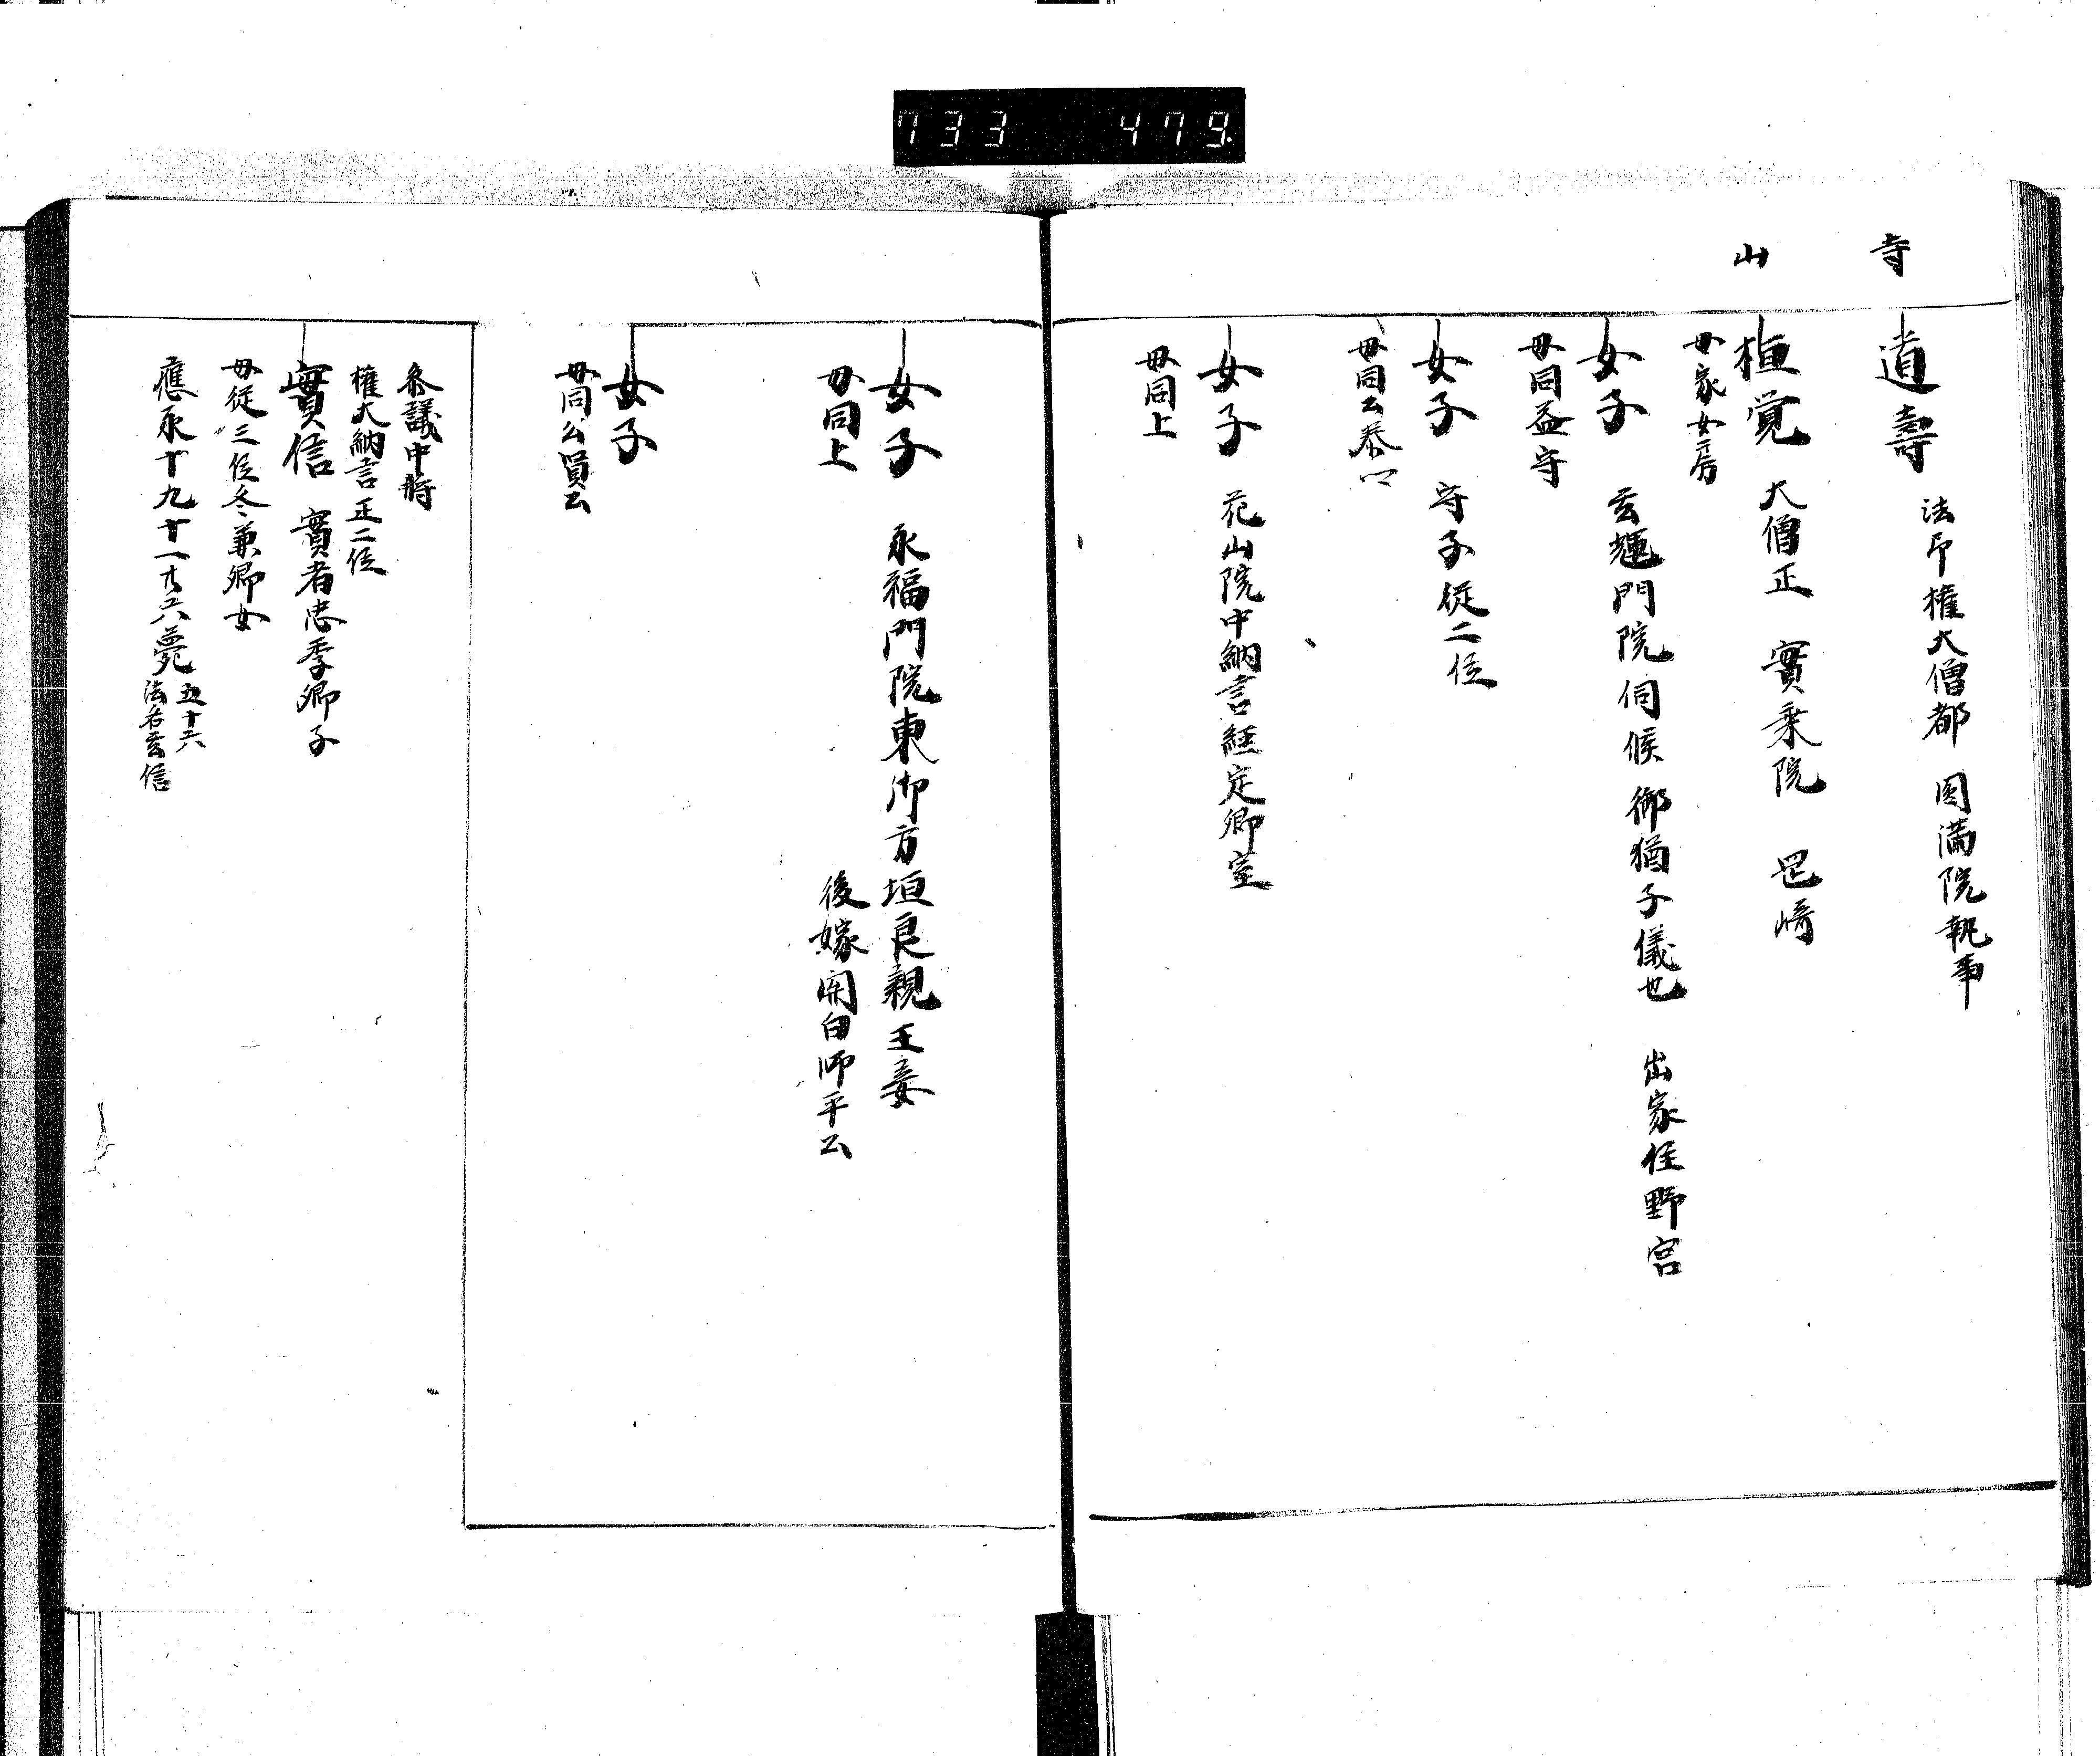 733 479
寺
道壽 法印権大僧都 圓満院執事
山
桓覚 大僧正 實乗院 岡﨑
母家女房
女子 玄輝門院伺候御猶子儀也 出家住野宮
母同益守
女子 守子従二位
母同公泰
女子 花山院中納言経定卿室
母同上
女子 永福門院東御方垣良親王妾
後嫁関白師平公
母同上
女子
母同公賢公
参議中将
権大納言正二位
實信 實者忠季卿子
母従三位冬兼卿女
應永十九十一廿六薨 五十六
法名玄信